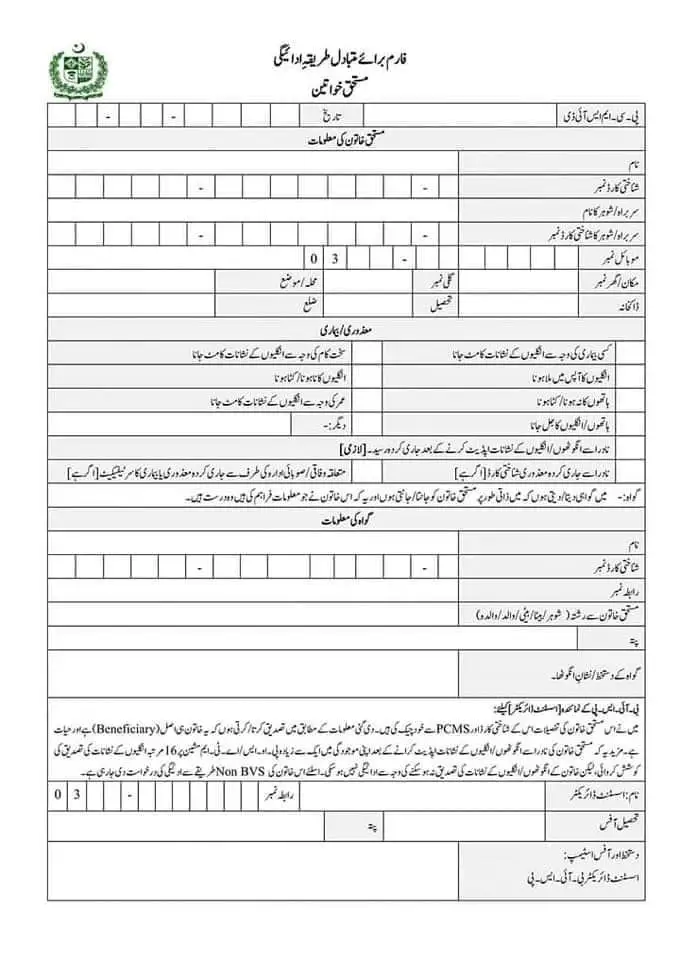 فارم برائے متبادل طریقہِ ادائیگی
مستحق خواتین
پی۔سی۔ایم ایس آئی ڈی
تاریخ - -
مستحق خاتون کی معلومات
نام
شناختی کارڈ نمبر - -
سربراہ/شوہر کا نام
سربراہ/شوہر کا شناختی کارڈ نمبر - -
موبائل نمبر 0 3 -
مکان/گھر نمبر گلی نمبر محلہ/موضع
ڈاکخانہ تحصیل ضلع
معذوری/بیماری
کسی بیماری کی وجہ سے انگلیوں کے نشانات کا مٹ جانا سخت کام کی وجہ سے انگلیوں کے نشانات کا مٹ جانا
انگلیوں کا آپس میں ملا ہونا انگلیوں کا نا ہونا/کٹا ہونا
ہاتھوں کا نہ ہونا/کٹا ہونا عمر کی وجہ سے انگلیوں کے نشانات کا مٹ جانا
ہاتھوں/انگلیوں کا جل جانا دیگر:-
نادرا سے انگوٹھوں/انگلیوں کے نشانات اپڈیٹ کرنے کے بعد جاری کردہ رسید۔ [لازمی]
نادرا سے جاری کردہ معذوری شناختی کارڈ [اگر ہے] متعلقہ وفاقی/صوبائی ادارہ کی طرف سے جاری کردہ معذوری یا بیماری کا سرٹیفیکیٹ [اگر ہے]
گواہ:- میں گواہی دیتا/دیتی ہوں کہ میں ذاتی طور پر مستحق خاتون کو جانتا/جانتی ہوں اور یہ کہ اس خاتون نے جو معلومات فراہم کی ہیں وہ درست ہیں۔
گواہ کی معلومات
نام
شناختی کارڈ نمبر - -
رابطہ نمبر
مستحق خاتون سے رشتہ (شوہر/بیٹا/بیٹی/والد/والدہ)
پتہ
گواہ کے دستخط/نشانِ انگوٹھا۔
بی۔آئی۔ایس۔پی کے نمائندہ [اسسٹنٹ ڈائریکٹر] کیلئے:
میں نے اس مستحق خاتون کی تفصیلات اس کے شناختی کارڈ اور PCMS سے خود چیک کی ہیں۔ دی گئی معلومات کے مطابق میں تصدیق کرتا/کرتی ہوں کہ یہ خاتون ہی اصل (Beneficiary) ہے اور حیات
ہے۔ مزید یہ کہ مستحق خاتون کی نادرا سے انگوٹھوں/انگلیوں کے نشانات اپڈیٹ کرانے کے بعد اپنی موجودگی میں ایک سے زیادہ پی۔او۔ایس/اے۔ٹی۔ایم مشین پر 16 مرتبہ انگلیوں کے نشانات کی تصدیق کی
کوشش کروائی، لیکن خاتون کے انگوٹھوں/انگلیوں کے نشانات کی تصدیق نہ ہو سکنے کی وجہ سے ادائیگی نہیں ہو سکی۔ اسلئے اس خاتون کی Non BVS طریقے سے ادائیگی کی درخواست دی جا رہی ہے۔
نام: اسسٹنٹ ڈائریکٹر رابطہ نمبر 0 3 -
تحصیل آفس پتہ
دستخط اور آفس اسٹیمپ:
اسسٹنٹ ڈائریکٹر بی۔آئی۔ایس۔پی